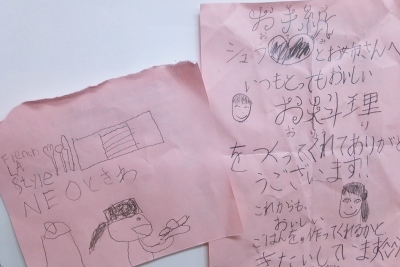 お手紙
シェフとお母さんへ
いつもとってもおいしい
お料理
をつくってくれてありがと
うございます!!
これからも、
おいしい
ごはんを。作ってくれるかと
きたいしています
French
LA
Style
NEOときわ